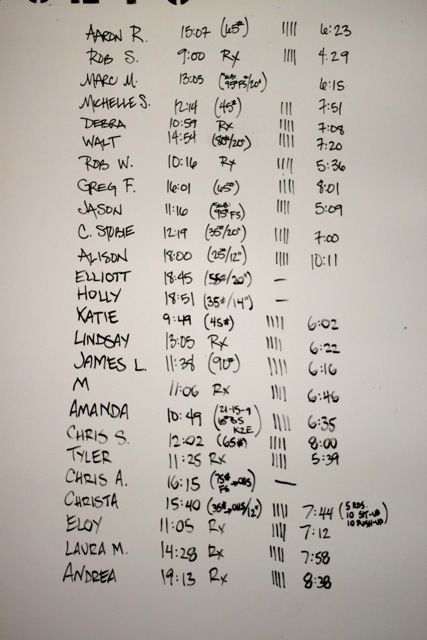 AARON R. 15:07 (65#) |||| 6:23
ROB S. 9:00 Rx |||| 4:29
MARC M. 13:05 (SUB: 95# FS/20") 6:15
MICHELLE S. 12:19 (45#) ||| 7:51
DEBRA 10:59 Rx |||| 7:08
WALT 14:54 (80#/20") |||| 7:20
ROB W. 10:16 Rx |||| 5:36
GREG F. 16:01 (65#) |||| 8:01
JASON 11:16 (SUB: 95# FS) |||| 5:09
C. STOBIE 12:19 (35#/20") |||| 7:00
ALISON 18:00 (25/12") |||| 10:11
ELLIOTT 18:45 (55#/20") —
HOLLY 18:51 (35#/14") —
KATIE 9:49 (45#) |||| 6:02
LINDSAY 13:05 Rx |||| 6:22
JAMES L. 11:38 (90#) |||| 6:16
M 11:06 Rx |||| 6:46
AMANDA 10:49 (21-15-9 65# BS K2E) |||| 6:35
CHRIS S. 12:02 (65#) |||| 8:00
TYLER 11:25 Rx |||| 5:39
CHRIS A. 16:15 (75# FS → OHS) —
CHRISTA 15:40 (35# → OHS/12") |||| 7:44 (5 RDS. 10 SIT-UP 10 PUSH-UP)
ELOY 11:05 Rx |||| 7:12
LAURA M. 14:28 Rx |||| 7:58
ANDREA 19:13 Rx |||| 8:38